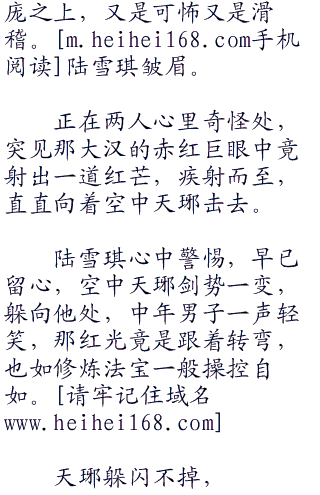 庞之上，又是可怖又是滑
稽。[m.heihei168.com手机
阅读]陆雪琪皱眉。
正在两人心里奇怪处，
突见那大汉的赤红巨眼中竟
射出一道红芒，疾射而至，
直直向着空中天琊击去。
陆雪琪心中警惕，早已
留心，空中天琊剑势一变，
躲向他处，中年男子一声轻
笑，那红光竟是跟着转弯，
也如修炼法宝一般操控自
如。[请牢记住域名
www.heihei168.com]
天琊躲闪不掉，